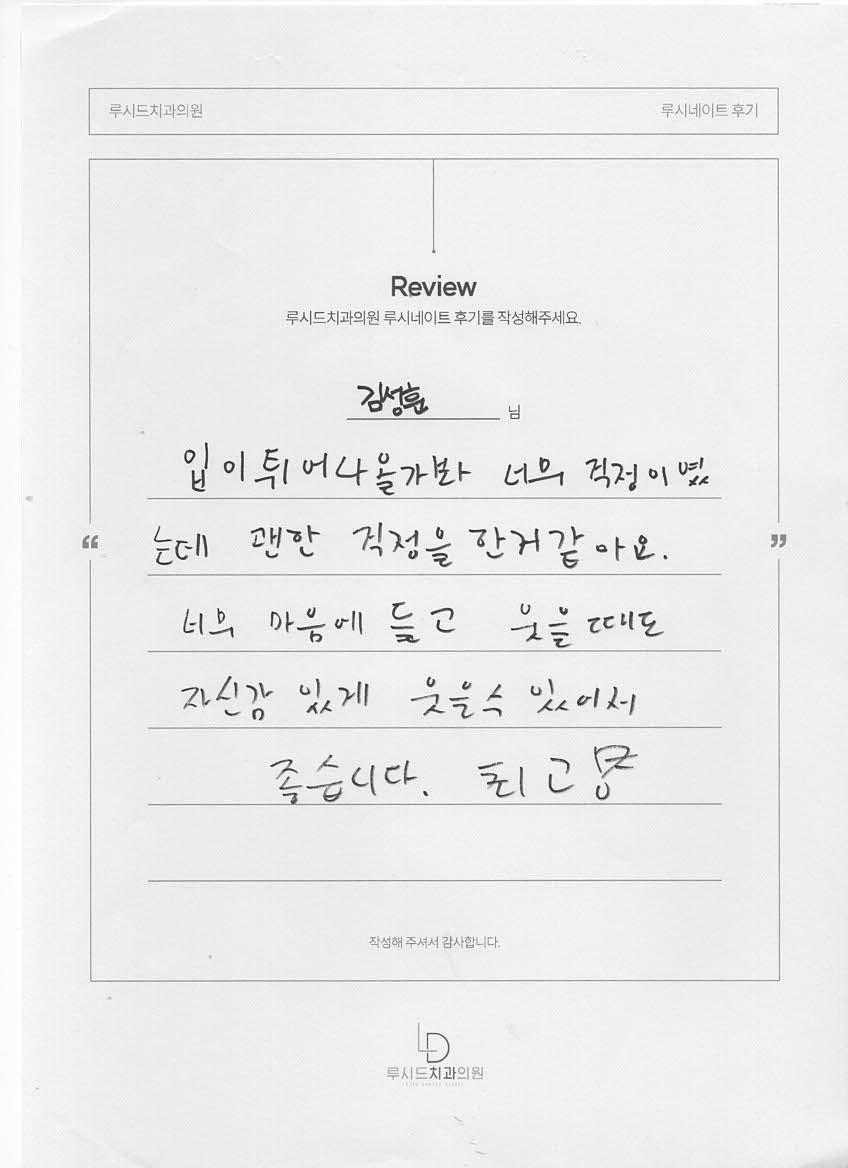 루시드치과의원 루시네이트 후기
Review
루시드치과의원 루시네이트 후기를 작성해주세요.
김성훈 님
입이튀어나올가봐 너무 직정이였
“ 는데 괜한 직정을 한거같아요. ”
너무 마음에 들고 웃을때도
자신감 있게 웃을수 있어서
좋습니다. 최고
작성해 주셔서 감사합니다.
LD
루시드치과의원